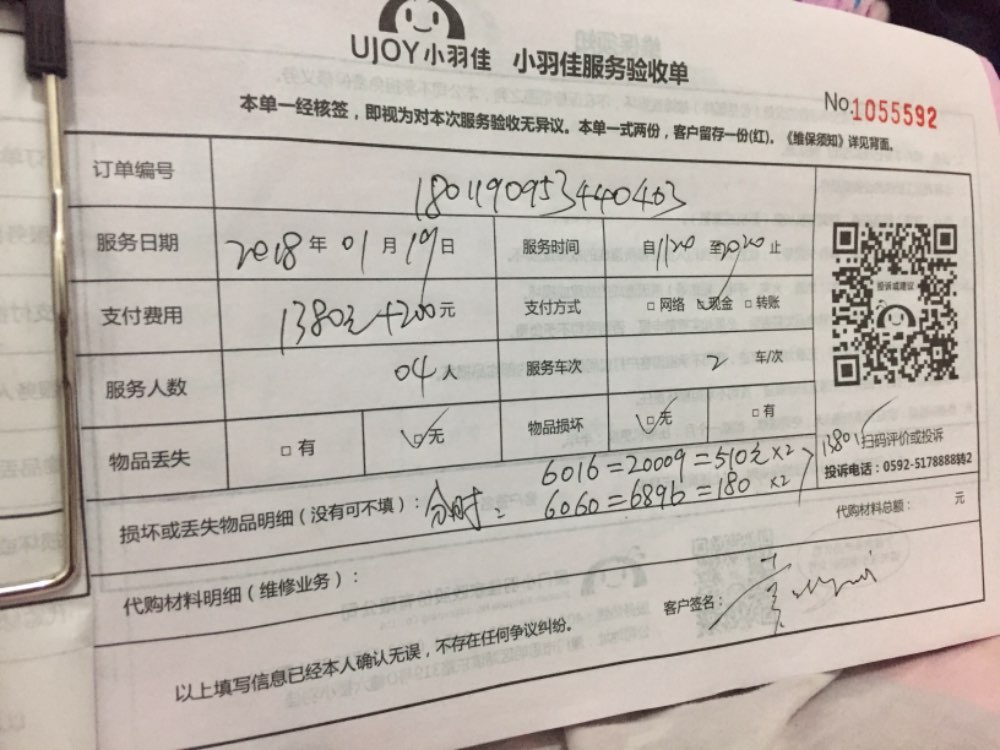 UJOY小羽佳 小羽佳服务验收单
No.1055592
本单一经核签，即视为对本次服务验收无异议。本单一式两份，客户留存一份(红)。《维保须知》详见背面。
订单编号 180119095344400403
服务日期 2018年01月19日 服务时间 自1120至2020止
支付费用 1380元+200元 支付方式 □网络 □现金 □转账
投诉或建议
服务人数 04人 服务车次 2 车/次
物品丢失 □有 □无 物品损坏 □无 □有
扫码评价或投诉
投诉电话：0592-5178888转2
6016=20009=510元×2
1380
损坏或丢失物品明细(没有可不填)：6060=6896=180×2
代购材料总额： 元
代购材料明细(维修业务)：
客户签名：
以上填写信息已经本人确认无误，不存在任何争议纠纷。